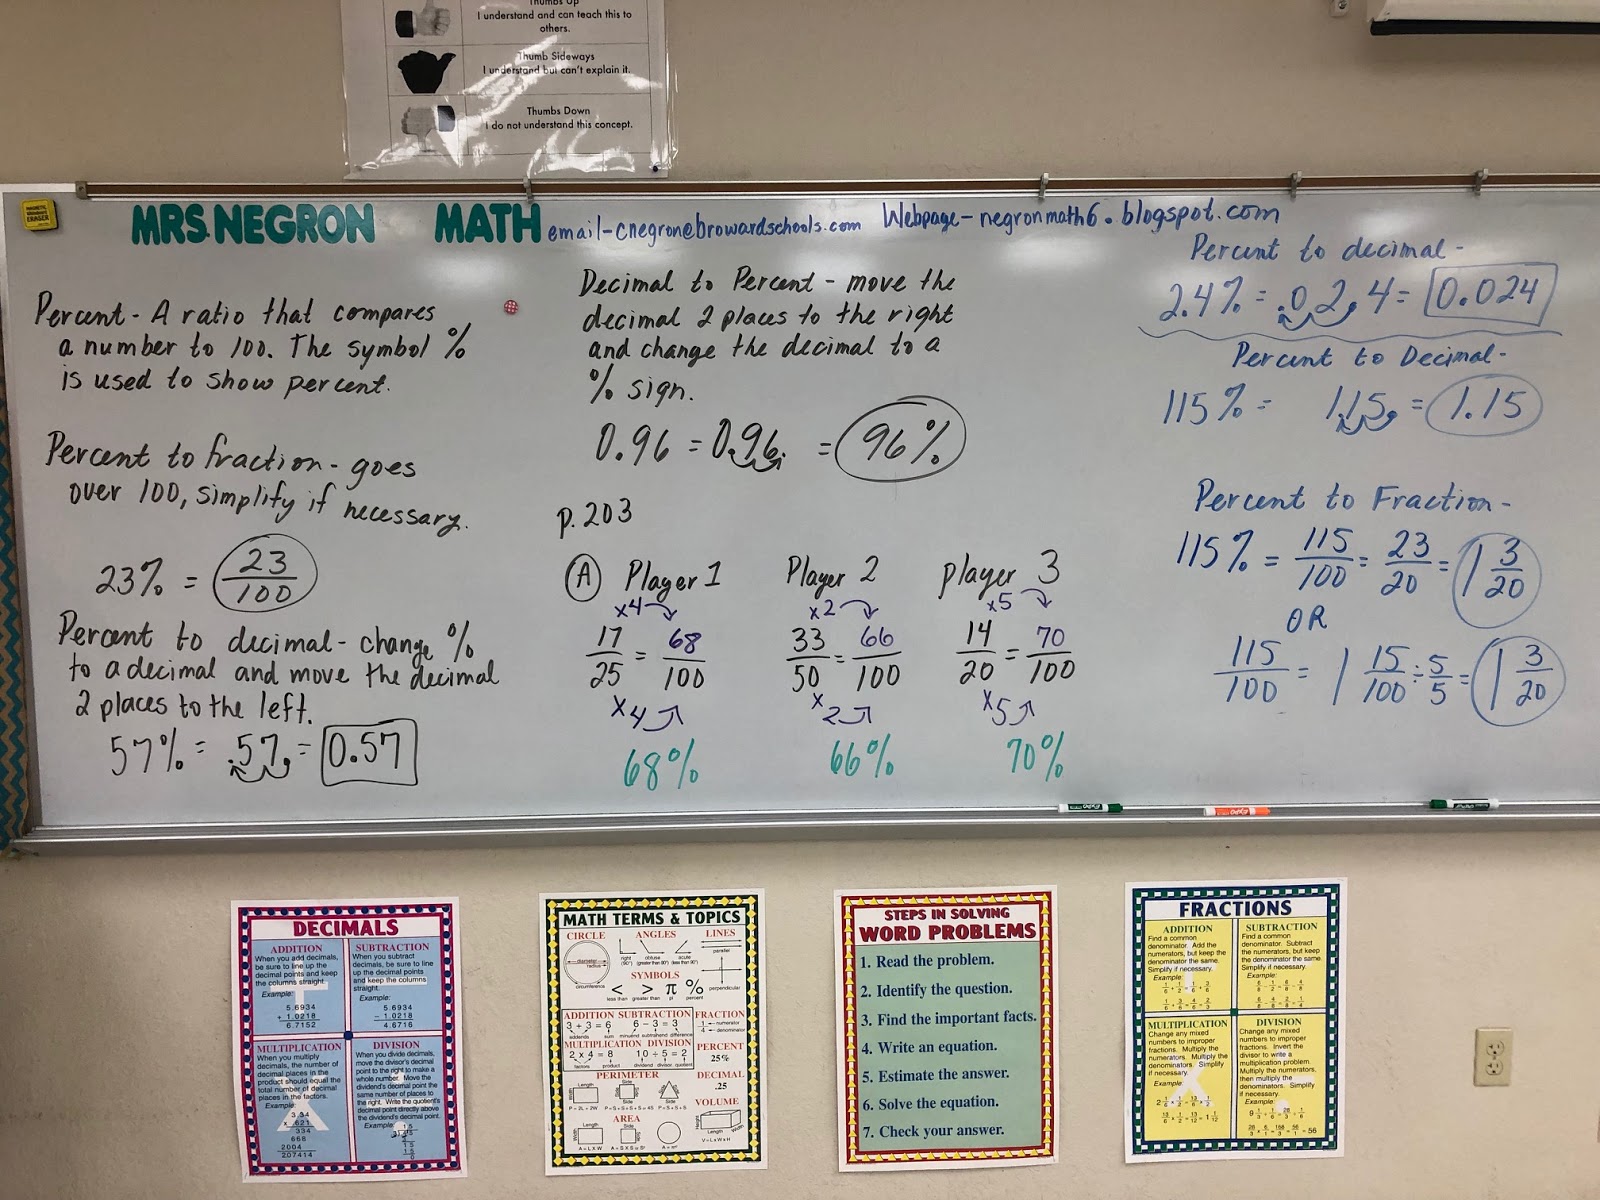 Thumbs Up
I understand and can teach this to
others.
Thumb Sideways
I understand but can't explain it.
Thumbs Down
I do not understand this concept.
MRS. NEGRON MATH email-cnegron@browardschools.com Webpage-negronmath6.blogspot.com
Percent - A ratio that compares
a number to 100. The symbol %
is used to show percent.
Percent to fraction - goes
over 100, simplify if necessary.
23% = 23/100
Percent to decimal - change %
to a decimal and move the decimal
2 places to the left.
57% = .57. = 0.57
Decimal to Percent - move the
decimal 2 places to the right
and change the decimal to a
% sign.
0.96 = 0.96. = 96%
p. 203
A Player 1 Player 2 player 3
x4 x2 x5
17/25 = 68/100 33/50 = 66/100 14/20 = 70/100
x4 x2 x5
68% 66% 70%
Percent to decimal -
2.4% = .02.4 = 0.024
Percent to Decimal -
115% = 1.15. = 1.15
Percent to Fraction -
115% = 115/100 = 23/20 = 1 3/20
OR
115/100 = 1 15/100 ÷ 5/5 = 1 3/20
DECIMALS
ADDITION
When you add decimals,
be sure to line up the
decimal points and keep
the columns straight.
Example:
5.6934
+ 1.0218
6.7152
SUBTRACTION
When you subtract
decimals, be sure to line
up the decimal points
and keep the columns
straight.
Example:
5.6934
- 1.0218
4.6716
MULTIPLICATION
When you multiply
decimals, the number of
decimal places in the
product should equal the
total number of decimal
places in the factors.
Example:
3.34
x .621
334
668
2004
207414
DIVISION
When you divide decimals,
move the divisor's decimal
point to the right to make a
whole number. Move the
dividend's decimal point the
same number of places to
the right. Write the quotient's
decimal point directly above
the dividend's decimal point.
Example:
MATH TERMS & TOPICS
CIRCLE ANGLES LINES
diameter
radius
circumference
right (90°) obtuse (greater than 90°) acute (less than 90°)
parallel
perpendicular
SYMBOLS
< > π %
less than greater than pi percent
ADDITION SUBTRACTION FRACTION
3 + 3 = 6 6 - 3 = 3
addends sum minuend subtrahend difference
1 numerator
4 denominator
MULTIPLICATION DIVISION
2 x 4 = 8 10 ÷ 5 = 2
factors product dividend divisor quotient
PERCENT
25%
PERIMETER
Length Side
P = 2L + 2W P=S+S+S+S=4S P=S+S+S
DECIMAL
.25
AREA
A = L X W
VOLUME
Length
V=LxWxH
STEPS IN SOLVING
WORD PROBLEMS
1. Read the problem.
2. Identify the question.
3. Find the important facts.
4. Write an equation.
5. Estimate the answer.
6. Solve the equation.
7. Check your answer.
FRACTIONS
ADDITION
Find a common
denominator. Add the
numerators, but keep
the denominator the same.
Simplify if necessary.
Example:
SUBTRACTION
Find a common
denominator. Subtract
the numerators, but keep
the denominator the same.
Simplify if necessary.
Example:
MULTIPLICATION
Change any mixed
numbers to improper
fractions. Multiply the
numerators. Multiply the
denominators. Simplify
if necessary.
Example:
DIVISION
Change any mixed
numbers to improper
fractions. Invert the
divisor to write a
multiplication problem.
Multiply the numerators,
then multiply the
denominators. Simplify
if necessary.
Example: